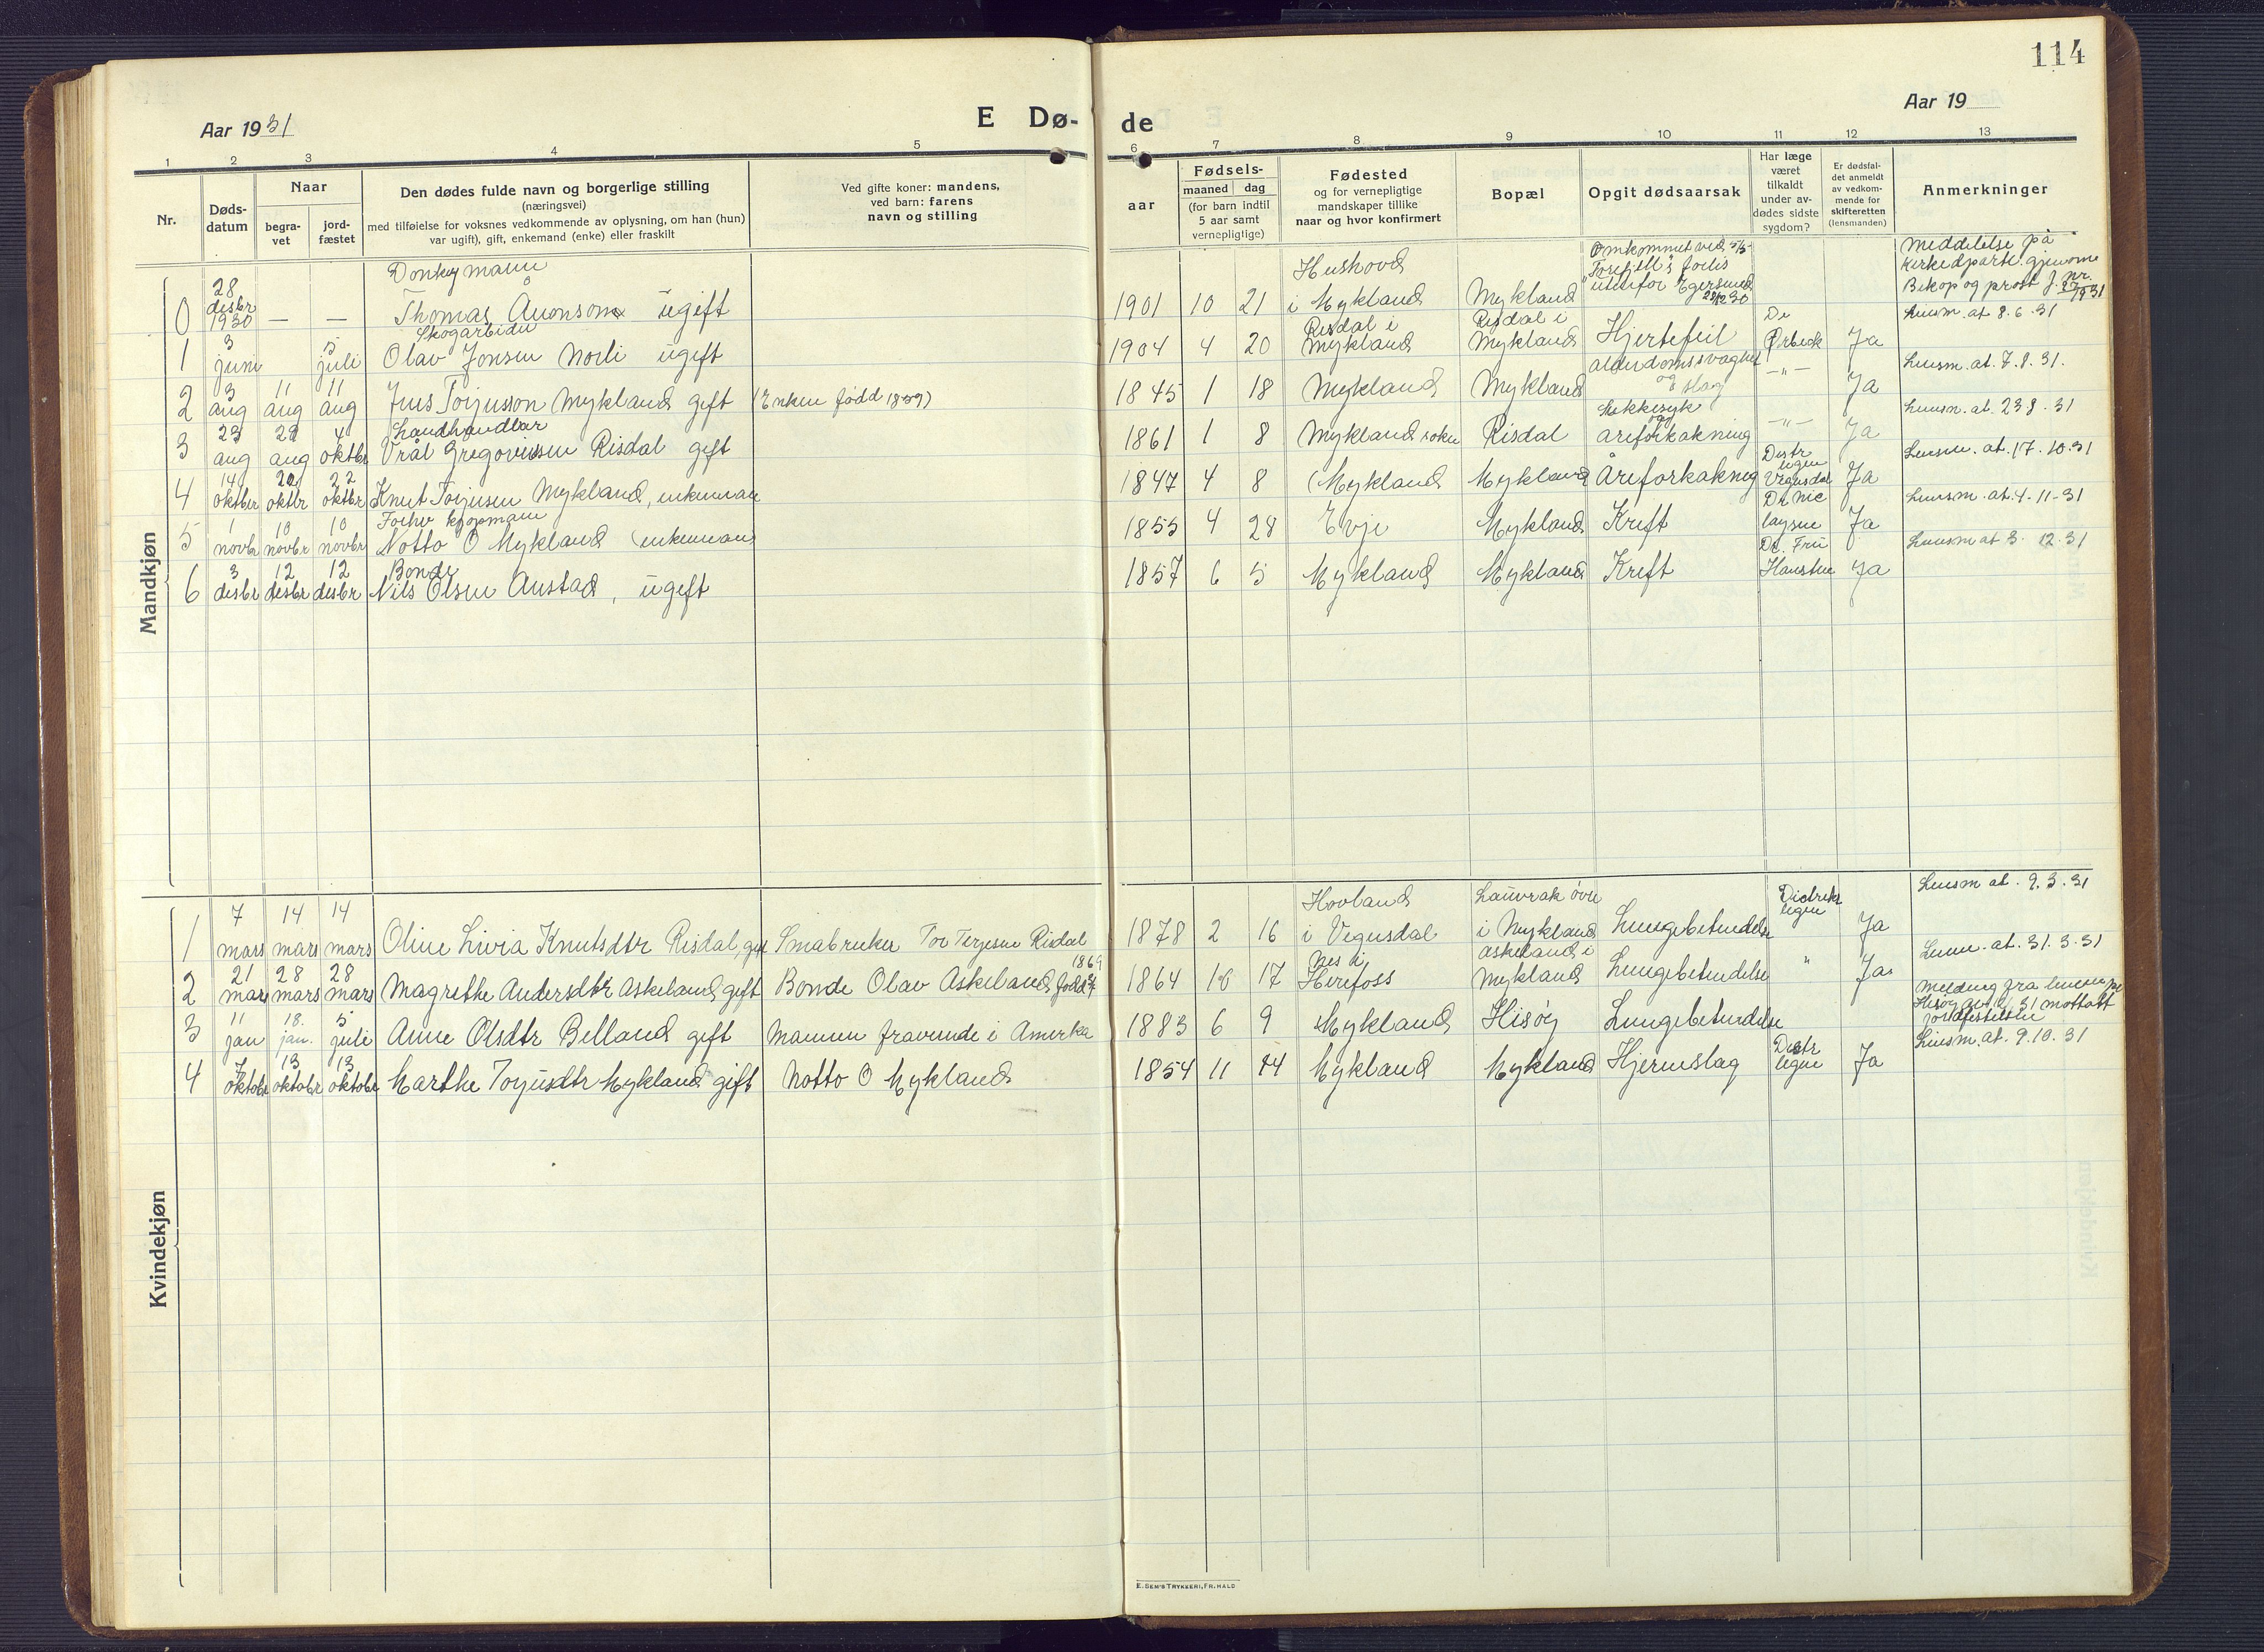 114
Aar 1931
E Dø-
de
Aar 19
1 2 3 4 5 6 7 8 9 10 11 12 13
Nr.
Døds-
datum
Naar
begra-
vet
jord-
fæstet
Den dødes fulde navn og borgerlige stilling
(næringsvei)
med tilføielse for voksnes vedkommende av oplysning, om han (hun)
var ugift), gift, enkemand (enke) eller fraskilt
Ved gifte koner: mandens,
ved barn: farens
navn og stilling
aar
Fødsels-
maaned dag
(for barn indtil
5 aar samt
vernepligtige)
Fødested
og for vernepligtige
mandskaper tillike
naar og hvor konfirmert
Bopæl
Opgit dødsaarsak
Har læge
været
tilkaldt
under av-
dødes sidste
sygdom?
Er dødsfal-
det anmeldt
av vedkom-
mende for
skifteretten
(lensmanden)
Anmerkninger
Mandkjøn
0 28 desbr 1930 — — Donkeymann
Thomas Åuonsom ugift
1901 10 21 Huskovd
i Mykland Mykland Omkommet ved
"Torefjell"s forlis
utenfor Egersund
28/12 30
Meddelelse på
kirkedparte. gjennom
Biskop og prost J. nr.
1 3 juni 5 juli Skogarbider
Olav Jonsen Norli ugift
1904 4 20 Risdal i
Mykland Risdal i
Mykland Hjertefeil Dr
Ørbeck Ja Lensm. at 8.6.31
2 3 aug 11 aug 11 aug Jens Torjusson Mykland gift (Enken født 1859)
1845 1 18 Mykland Mykland alderdomssvaghet
og slag —"— Ja Lensm. at. 7.8.31.
3 23 aug 29 aug 4 oktbr Landhandlar
Vrål Gregoriussen Risdal gift
1861 1 8 Mykland sokn Risdal Sukkesyk
og
areforkakning —"— Ja Lensm. at. 23.8.31
4 14 oktber 22 oktbr 22 oktbr Knut Torjusen Mykland, enkeman
1847 4 8 Mykland Mykland Åreforkakning Distr
legen
Vegusdal Ja Lensm. at. 17.10.31
5 1 novbr 10 novbr 10 novbr Forhv kjøpmann
Notto O Mykland enkeman
1855 4 28 Evje Mykland Kreft Dr Nic
laysne Ja Lensm. at. 4-11-31
6 3 desbr 12 desbr 12 desbr Bonde
Nils Olsen Austad, ugift
1857 6 5 Mykland Mykland Kreft Dr. Fru
Hanshue Ja Lensm at 3. 12.31
Kvindekjøn
1 7 mars 14 mars 14 mars Oline Livia Knutsdtr Risdal, gift Smabruker Tor Terjesen Risdal
1878 2 16 Hovland
i Vegusdal Lauvrak øvre
i Mykland Lungebetendelse Distrikts
legen Ja Lensm at. 9.3.31
2 21 mars 28 mars 28 mars Magrethe Andersdtr Askeland gift Bonde Olav Askeland født 1869
1864 10 17 Nes i
Herefoss Askeland i
Mykland Lungebetendelse " Ja Lensm. at. 31.3.31
3 11 jan 18. jan. 5 juli Anne Olsdtr Belland gift Mannen fraverende i Amerka
1883 6 9 Mykland Hisøy Lungebetendelse
Melding fra lensm
Hisøy 31 mottatt
jordfestelsen
4 7 oktobr 13 oktobr 13 oktobr Marthe Torjusdtr Mykland gift Notto O Mykland
1854 11 14 Mykland Mykland Hjerneslag Distr
legen Ja Lensm. at. 9.10.31
E. Sem's Trykkeri, Fr.hald